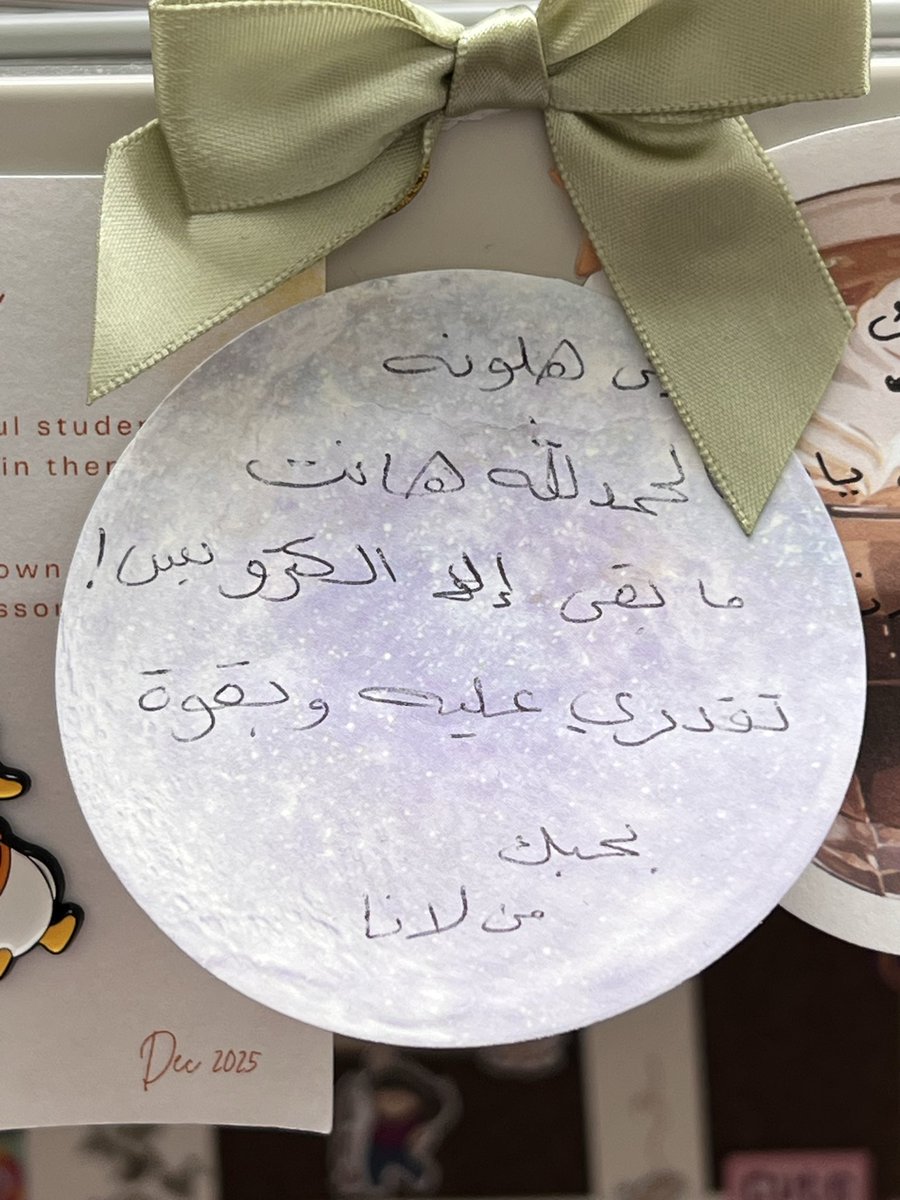 هلونه
لحمدلله هانت
ما بقى إلا الكرويس!
تقدري عليه وبقوة
بحبك
من لانا
يا
ul studen
in ther
own
ssor
Dec 2025